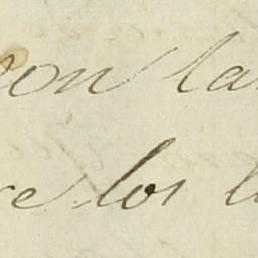 con la
re los l